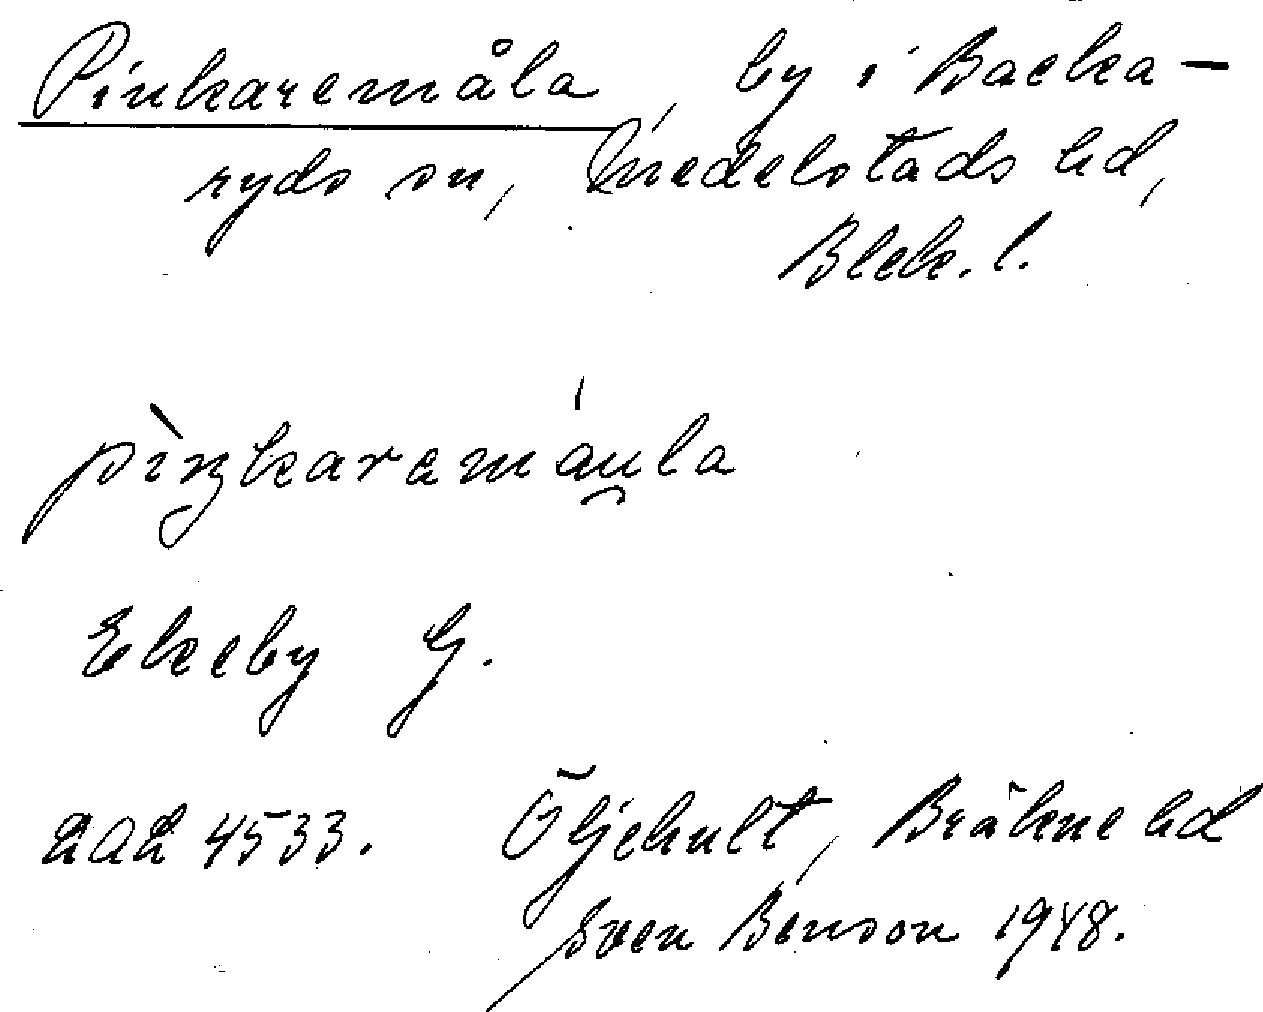 Pinkaremåla, by i Backa-
ryds sn, Medelstads hd,
Blek. l.
pìŋkaremáu̯la
Ekeby G.
LAL 4533. Öljehult, Bräkne hd
Sven Benson 1948.